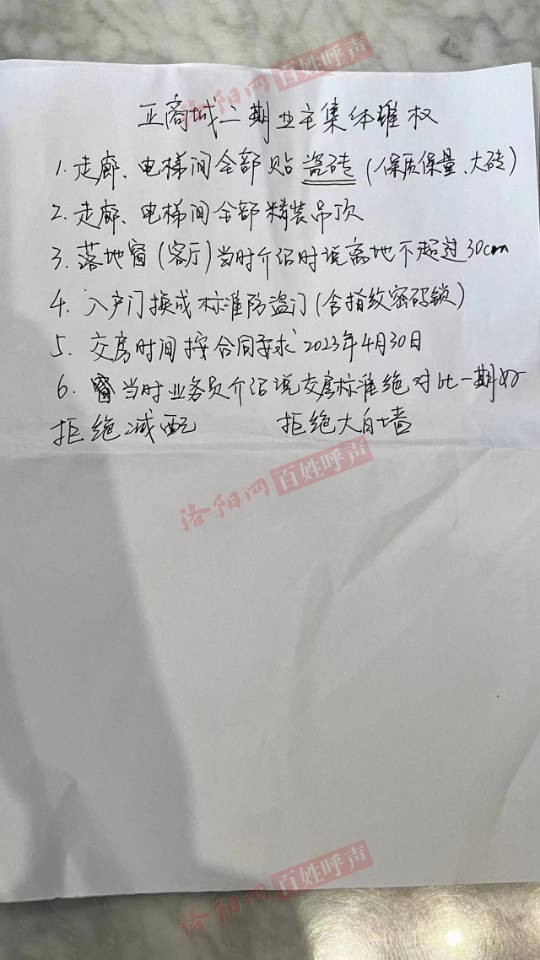 洛阳网 百姓呼声
正商城二期业主集体维权
1. 走廊、电梯间全部贴瓷砖(保质保量、大砖)
2. 走廊、电梯间全部精装吊顶
3. 落地窗(客厅)当时介绍时说离地不超过30cm
4. 入户门换成标准防盗门(含指纹密码锁)
5. 交房时间按合同要求2023年4月30日
6. 当时业务员介绍说交房标准绝对比一期好
拒绝减配 拒绝大白墙
洛阳网 百姓呼声
洛阳网 百姓呼声